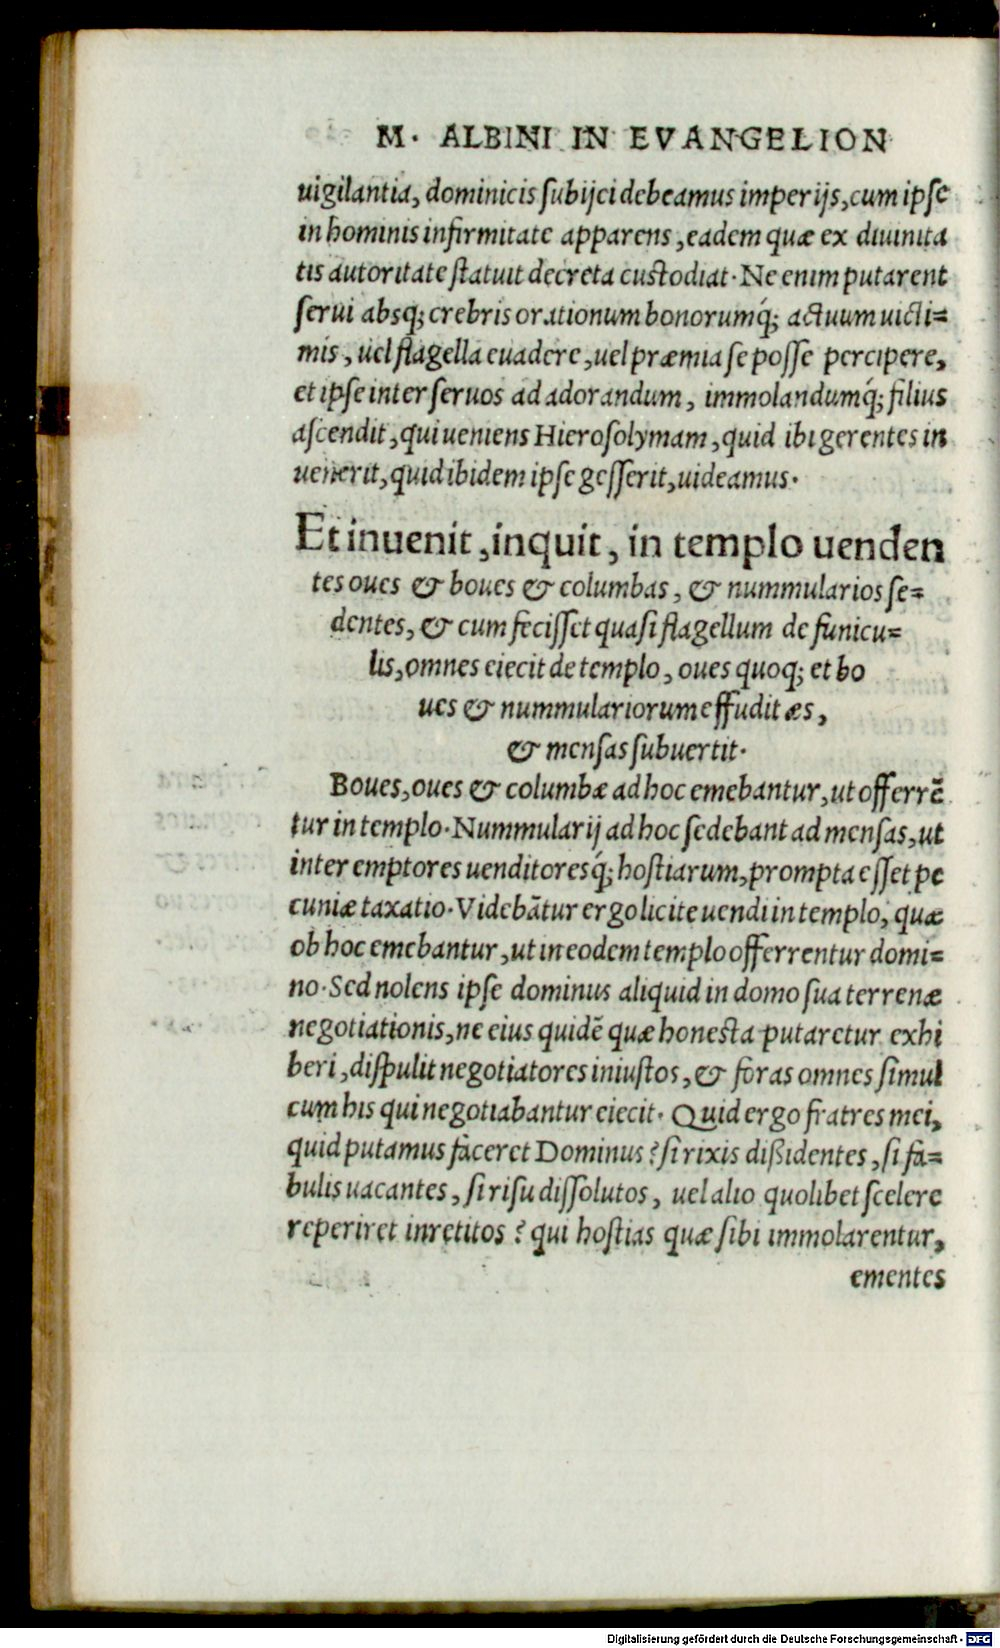 M. ALBINI IN EVANGELION
uigilantia, dominicis ſubijci debeamus imperijs, cum ipſe
in hominis infirmitate apparens, eadem quæ ex diuinita
tis autoritate ſtatuit decreta custodiat. Ne enim putarent
ſerui absq; crebris orationum bonorumq́; actuum uicti=
mis, uel flagella euadere, uel præmia ſe poſſe percipere,
et ipſe inter ſeruos ad adorandum, immolandumq́; filius
aſcendit, qui ueniens Hieroſolymam, quid ibi gerentes in
uenerit, quid ibidem ipſe geſſerit, uideamus.
Et inuenit, inquit, in templo uenden
tes oues & boues & columbas, & nummularios ſe=
dentes, & cum feciſſet quaſi flagellum de funicu=
lis, omnes eiecit de templo, oues quoq; et bo
ues & nummulariorum effudit æs,
& menſas ſubuertit.
Boues, oues & columbæ ad hoc emebantur, ut offerrē
tur in templo. Nummularij ad hoc ſedebant ad menſas, ut
inter emptores uenditoresq́; hoſtiarum, prompta eſſet pe
cuniæ taxatio. Videbātur ergo licite uendi in templo, quæ
ob hoc emebantur, ut in eodem templo offerrentur domi=
no. Sed nolens ipſe dominus aliquid in domo ſua terrenæ
negotiationis, ne eius quidē quæ honesta putaretur exhi
beri, diſpulit negotiatores iniuſtos, & foras omnes ſimul
cum his qui negotiabantur eiecit. Quid ergo fratres mei,
quid putamus faceret Dominus? ſi rixis dißidentes, ſi fa=
bulis uacantes, ſi riſu diſſolutos, uel alio quolibet ſcelere
reperiret inretitos? qui hoſtias quæ ſibi immolarentur,
ementes
Digitalisierung gefördert durch die Deutsche Forschungsgemeinschaft - DFG